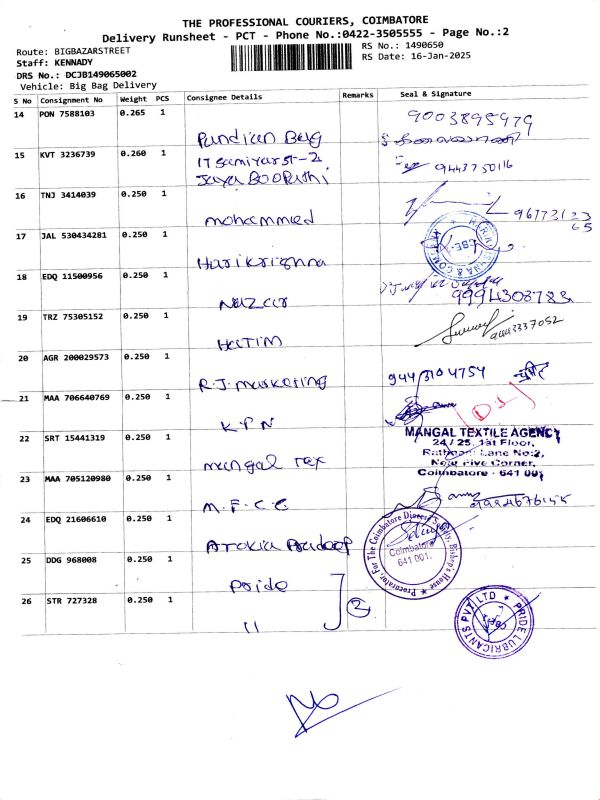 THE PROFESSIONAL COURIERS, COIMBATORE
Delivery Runsheet - PCT - Phone No.:0422-3505555 - Page No.:2
Route: BIGBAZARSTREET
RS No.: 1490650
Staff: KENNADY
RS Date: 16-Jan-2025
DRS No.: DCJB149065002
Vehicle: Big Bag Delivery
S No Consignment No Weight PCS Consignee Details Remarks Seal & Signature
14 PON 7588103 0.265 1 Pandian Bag 9003895979
15 KVT 3236739 0.260 1 17 Samiyar st-2 9443750116
Jaya Boopathi
16 TNJ 3414039 0.250 1 mohammied
17 JAL 530434281 0.250 1 Harikrishna
18 EDQ 11500956 0.250 1 Nazar 9994308783
19 TRZ 75305152 0.250 1 HATIM 9443337052
20 AGR 200029573 0.250 1 R.J. marketing 9443104754
21 MAA 706640769 0.250 1 K.P.N
22 SRT 15441319 0.250 1 mangal Tex
MANGAL TEXTILE AGENCY
24 / 25, 1st Floor,
Rathnam Lane No:2,
Near Five Corner,
Coimbatore - 641 001.
23 MAA 705120980 0.250 1 M.F.C.C
24 EDQ 21606610 0.250 1 Arokia Pradeep
Procurator, For The Coimbatore Diocese Society, Bishop's House
Coimbatore
641 001.
25 DDG 968008 0.250 1 Pride
26 STR 727328 0.250 1 11
2
PRIDE LUBRICANTS PVT LTD
CBE